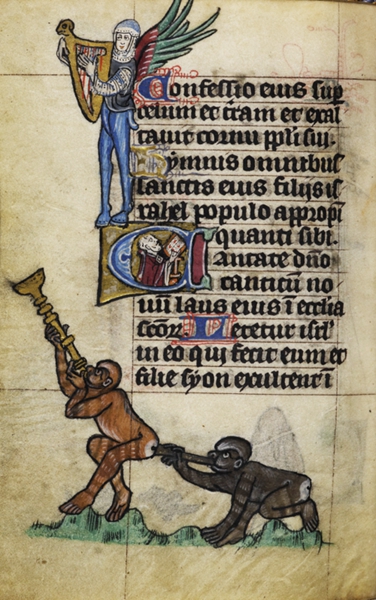 Confessio eius sup
celum et t̄ram et exal
tauit cornu pp̄li sui.
Ymnus omnibus
sanctis eius filijs is
rahel populo appropi
quanti sibi.
Cantate dn̄o
canticum no
uū laus eius ī eccl̄ia
sc̄or. Letetur isr̄l
in eo qui fecit eum et
filie syon exultent ī